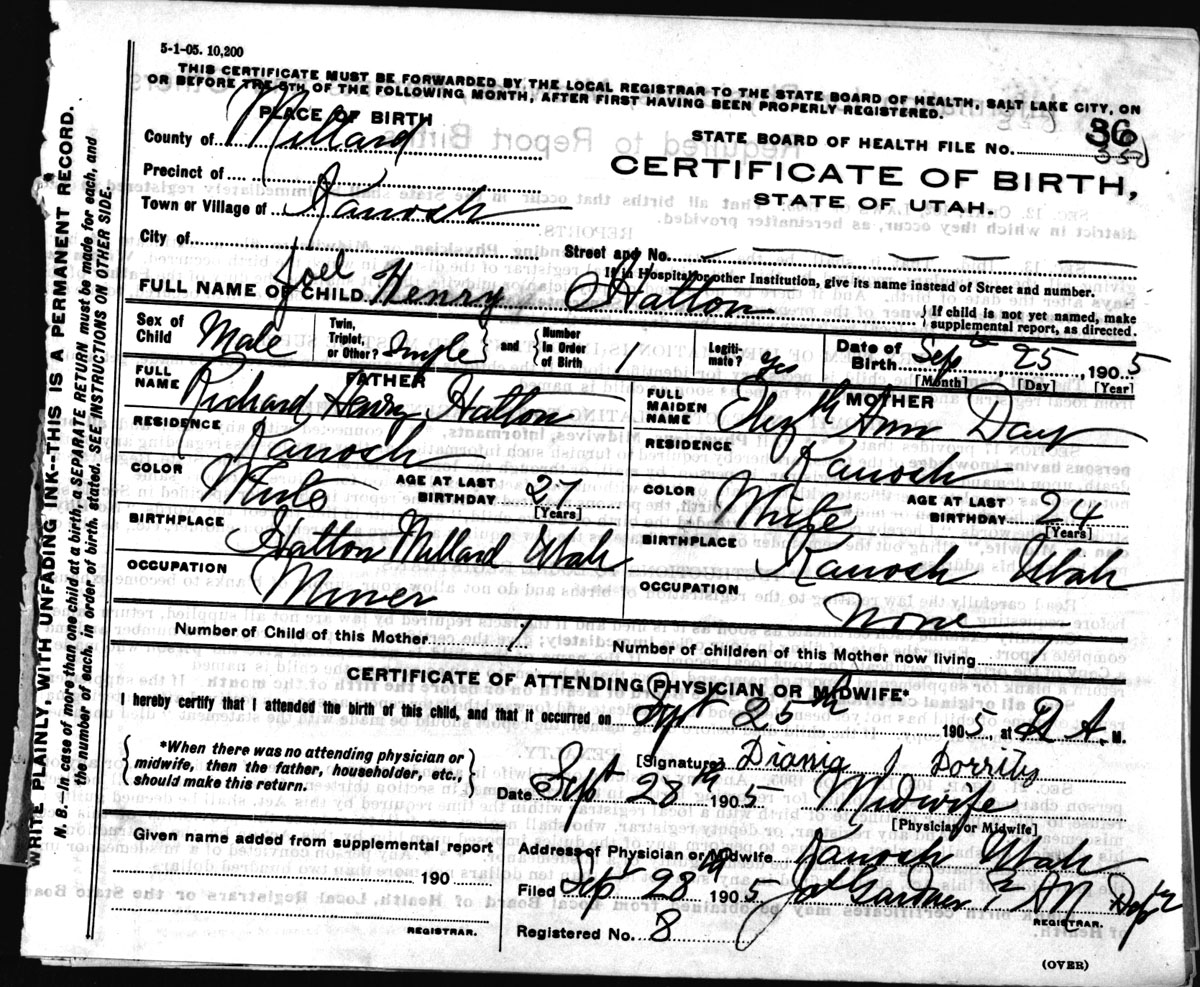 5-1-05. 10,200
THIS CERTIFICATE MUST BE FORWARDED BY THE LOCAL REGISTRAR TO THE STATE BOARD OF HEALTH, SALT LAKE CITY, ON
OR BEFORE THE 5TH OF THE FOLLOWING MONTH, AFTER FIRST HAVING BEEN PROPERLY REGISTERED.
WRITE PLAINLY, WITH UNFADING INK--THIS IS A PERMANENT RECORD.
N. B.--In case of more than one child at a birth, a SEPARATE RETURN must be made for each, and
the number of each, in order of birth, stated. SEE INSTRUCTIONS ON OTHER SIDE.
PLACE OF BIRTH
County of Millard
Precinct of
Town or Village of Kanosh
City of
STATE BOARD OF HEALTH FILE NO. 36
CERTIFICATE OF BIRTH,
STATE OF UTAH.
Street and No.
If in Hospital or other Institution, give its name instead of Street and number.
FULL NAME OF CHILD Joel Henry Hatton
If child is not yet named, make
supplemental report, as directed.
Sex of Child Male
Twin, Triplet, or Other? Single and Number in Order of Birth 1
Legitimate? yes
Date of Birth Sept 25, 1905
[Month] [Day] [Year]
FATHER
FULL NAME Richard Henry Hatton
RESIDENCE Kanosh
COLOR White AGE AT LAST BIRTHDAY 27
[Years]
BIRTHPLACE Hatton Millard Utah
OCCUPATION Miner
MOTHER
FULL MAIDEN NAME Elizth Ann Day
RESIDENCE Kanosh
COLOR White AGE AT LAST BIRTHDAY 24
[Years]
BIRTHPLACE Kanosh Utah
OCCUPATION None
Number of Child of this Mother 1 Number of children of this Mother now living 1
CERTIFICATE OF ATTENDING PHYSICIAN OR MIDWIFE*
I hereby certify that I attended the birth of this child, and that it occurred on Sept 25th 1905, at A. M.
*When there was no attending physician or
midwife, then the father, householder, etc.,
should make this return.
[Signature] Diania J Dorrity
Date Sept 28th 1905 Midwife
[Physician or Midwife]
Given name added from supplemental report
190
REGISTRAR.
Address of Physician or Midwife Kanosh Utah
Filed Sept 28th 1905 Gardner
REGISTRAR.
Registered No. 8
(OVER)